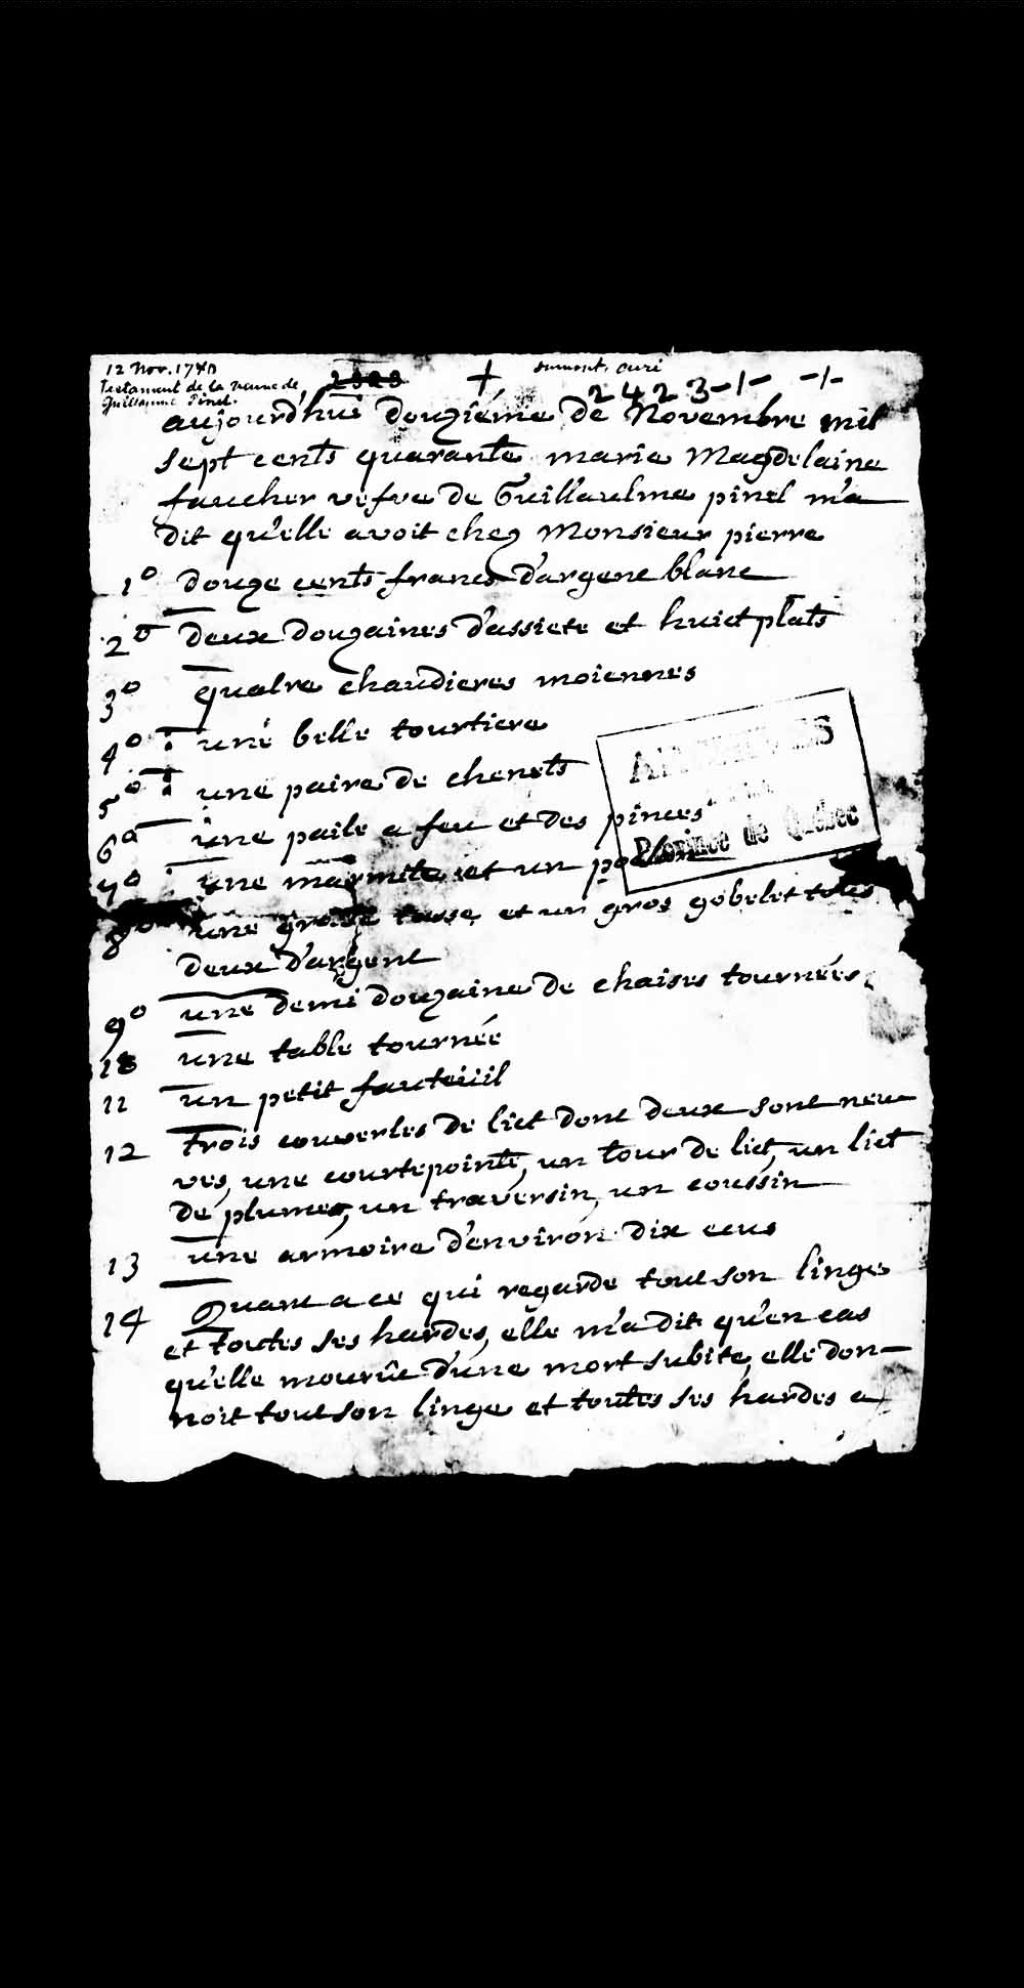 12 Nov. 1740
Testament de la veuve de
Guillaume Pinel.
2423-1- -1-
aujourd'hui douziéme de Novembre mil
sept cents quarante marie Magdelaine
faucher vefve de Guillaulme pinel m'a
dit qu'elle avoit chez Monsieur pierre
1º douze cents francs d'argent blanc
2º deux douzaines d'assiete et huict plats
3º quatre chaudieres moiennes
4º une belle tourtiere
5º une paire de chenets
6º une paile a feu et des pinces
7º une marmite et un
8º une grosse tasse et un gros gobelet tous
deux d'argent
9º une demi douzaine de chaises tournées
10 une table tournée
11 un petit fauteüil
12 trois couvertes de lict dont deux sont neu
ves, une courtepointe, un tour de lict, un lict
de plumes, un traversin, un coussin
13 une armoire d'environ dix ecus
14 Quant a ce qui regarde tout son linge
et toutes ses hardes, elle m'a dit qu'en cas
qu'elle mourût d'une mort subite, elle don-
noit tout son linge et toutes ses hardes a
Province de Québec